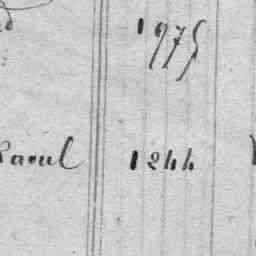 1975
Raoul 1244